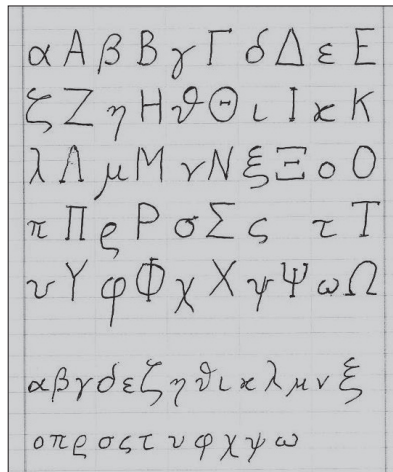 α Α β Β γ Γ δ Δ ε Ε
ζ Ζ η Η ϑ Θ ι Ι ϰ Κ
λ Λ μ Μ ν Ν ξ Ξ ο Ο
π Π ϱ Ρ σ Σ ς τ Τ
υ Υ φ Φ χ Χ ψ Ψ ω Ω
α β γ δ ε ζ η ϑ ι ϰ λ μ ν ξ
ο π ϱ σ ς τ υ φ χ ψ ω